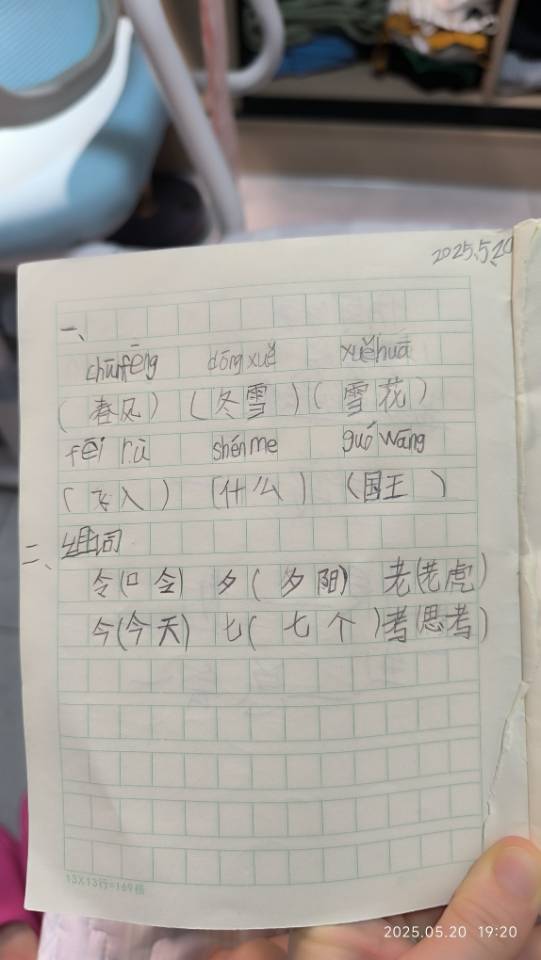 2025.5.20
一、
chūnfēng dōngxuě xuěhuā
(春风) (冬雪) (雪花)
fēi rù shénme guówáng
(飞入) (什么) (国王)
二、组词
令(口令) 夕(夕阳) 老(老虎)
今(今天) 七(七个) 考(思考)
13X13行=169格
2025.05.20 19:20